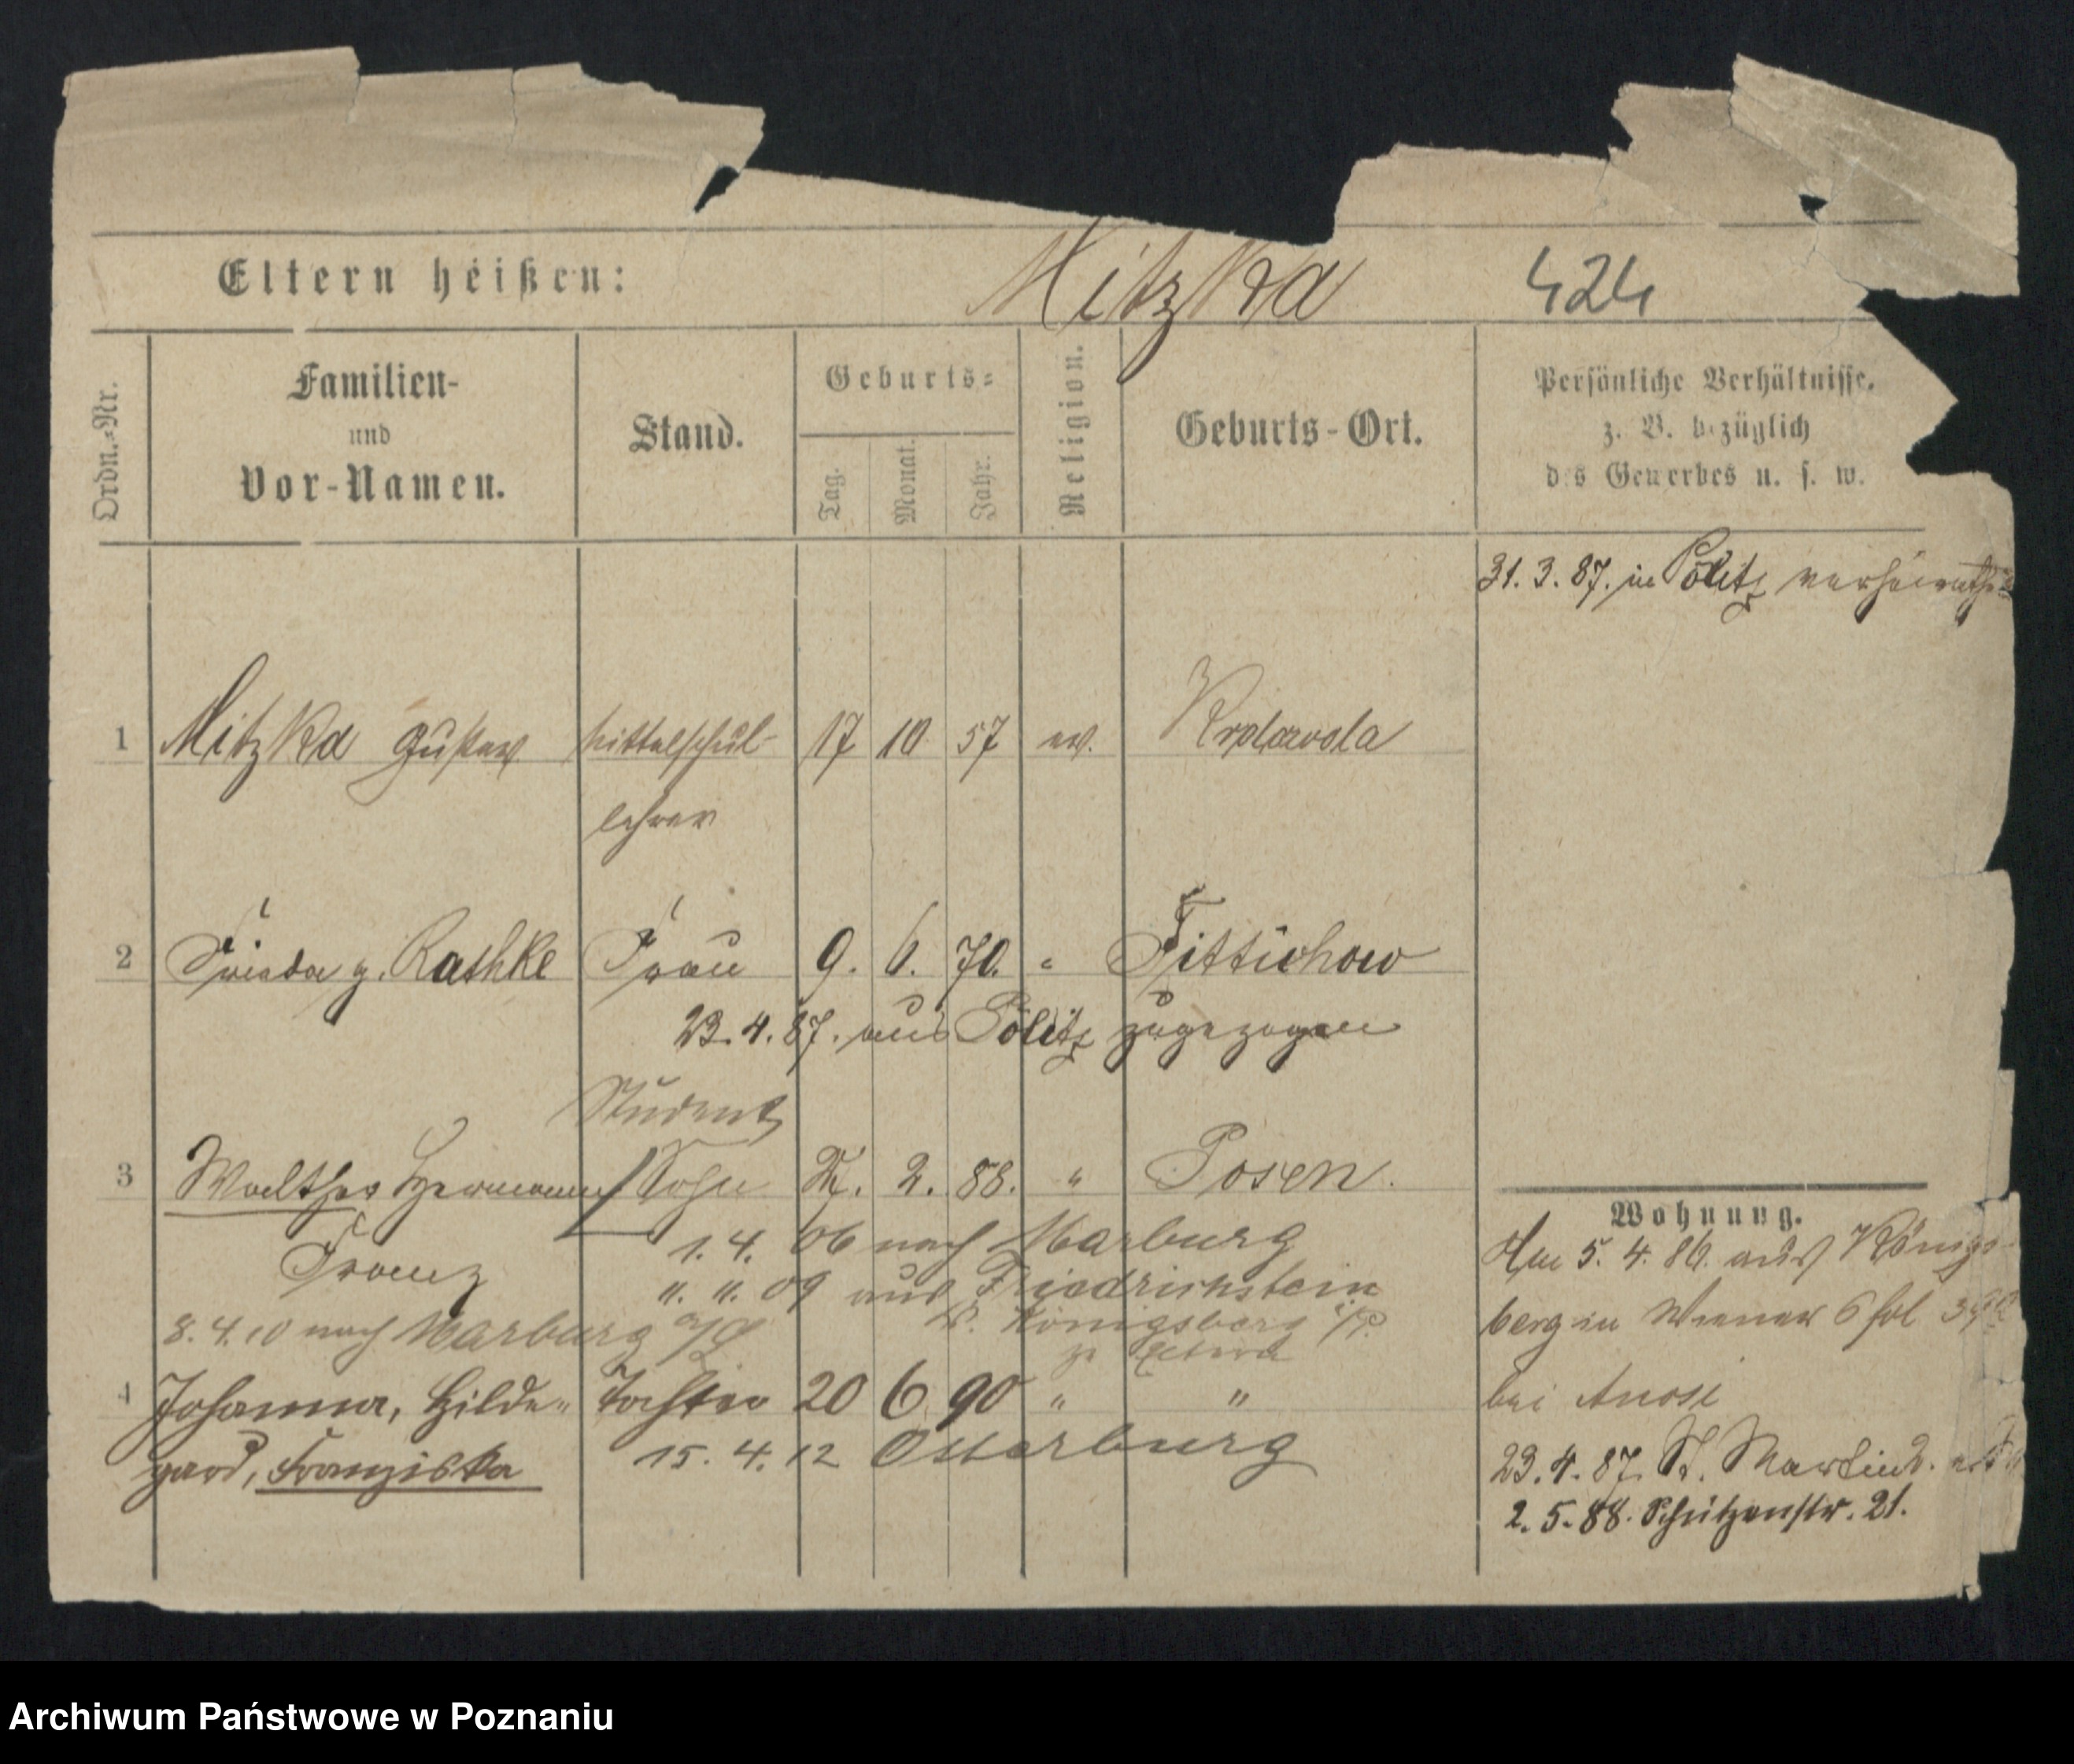 Mitzka 424
Eltern heißen:
Ordn.-Nr.
Familien-
und
Vor-Namen.
Stand.
Geburts-
Tag.
Monat.
Jahr.
Religion.
Geburts-Ort.
Persönliche Verhältnisse.
z. B. bezüglich
des Gewerbes u. s. w.
31. 3. 87. in Pölitz verheirathet
1 Mitzka Gustav Mittelschul- 17 10 57 ev.
lehrer
2 Frieda g. Rathke Frau 9. 6. 70. " Fittichow
23. 4. 87. aus Pölitz zugezogen
Student
3 Walther Hermann Sohn 2. 88. " Posen.
Franz
1. 4. 06 nach Marburg
". ". 09 aus Friedrichstein
Königsberg
8. 4. 10 nach Marburg
4 Johanna, Hilde- Tochter 20 6 90 " "
gard, Franziska
15. 4. 12
Wohnung.
Am 5. 4. 86. aus Königs-
berg in 6 fol
bei
23. 4. 87. St. Martin
2. 5. 88. Schützenstr. 21.
Archiwum Państwowe w Poznaniu